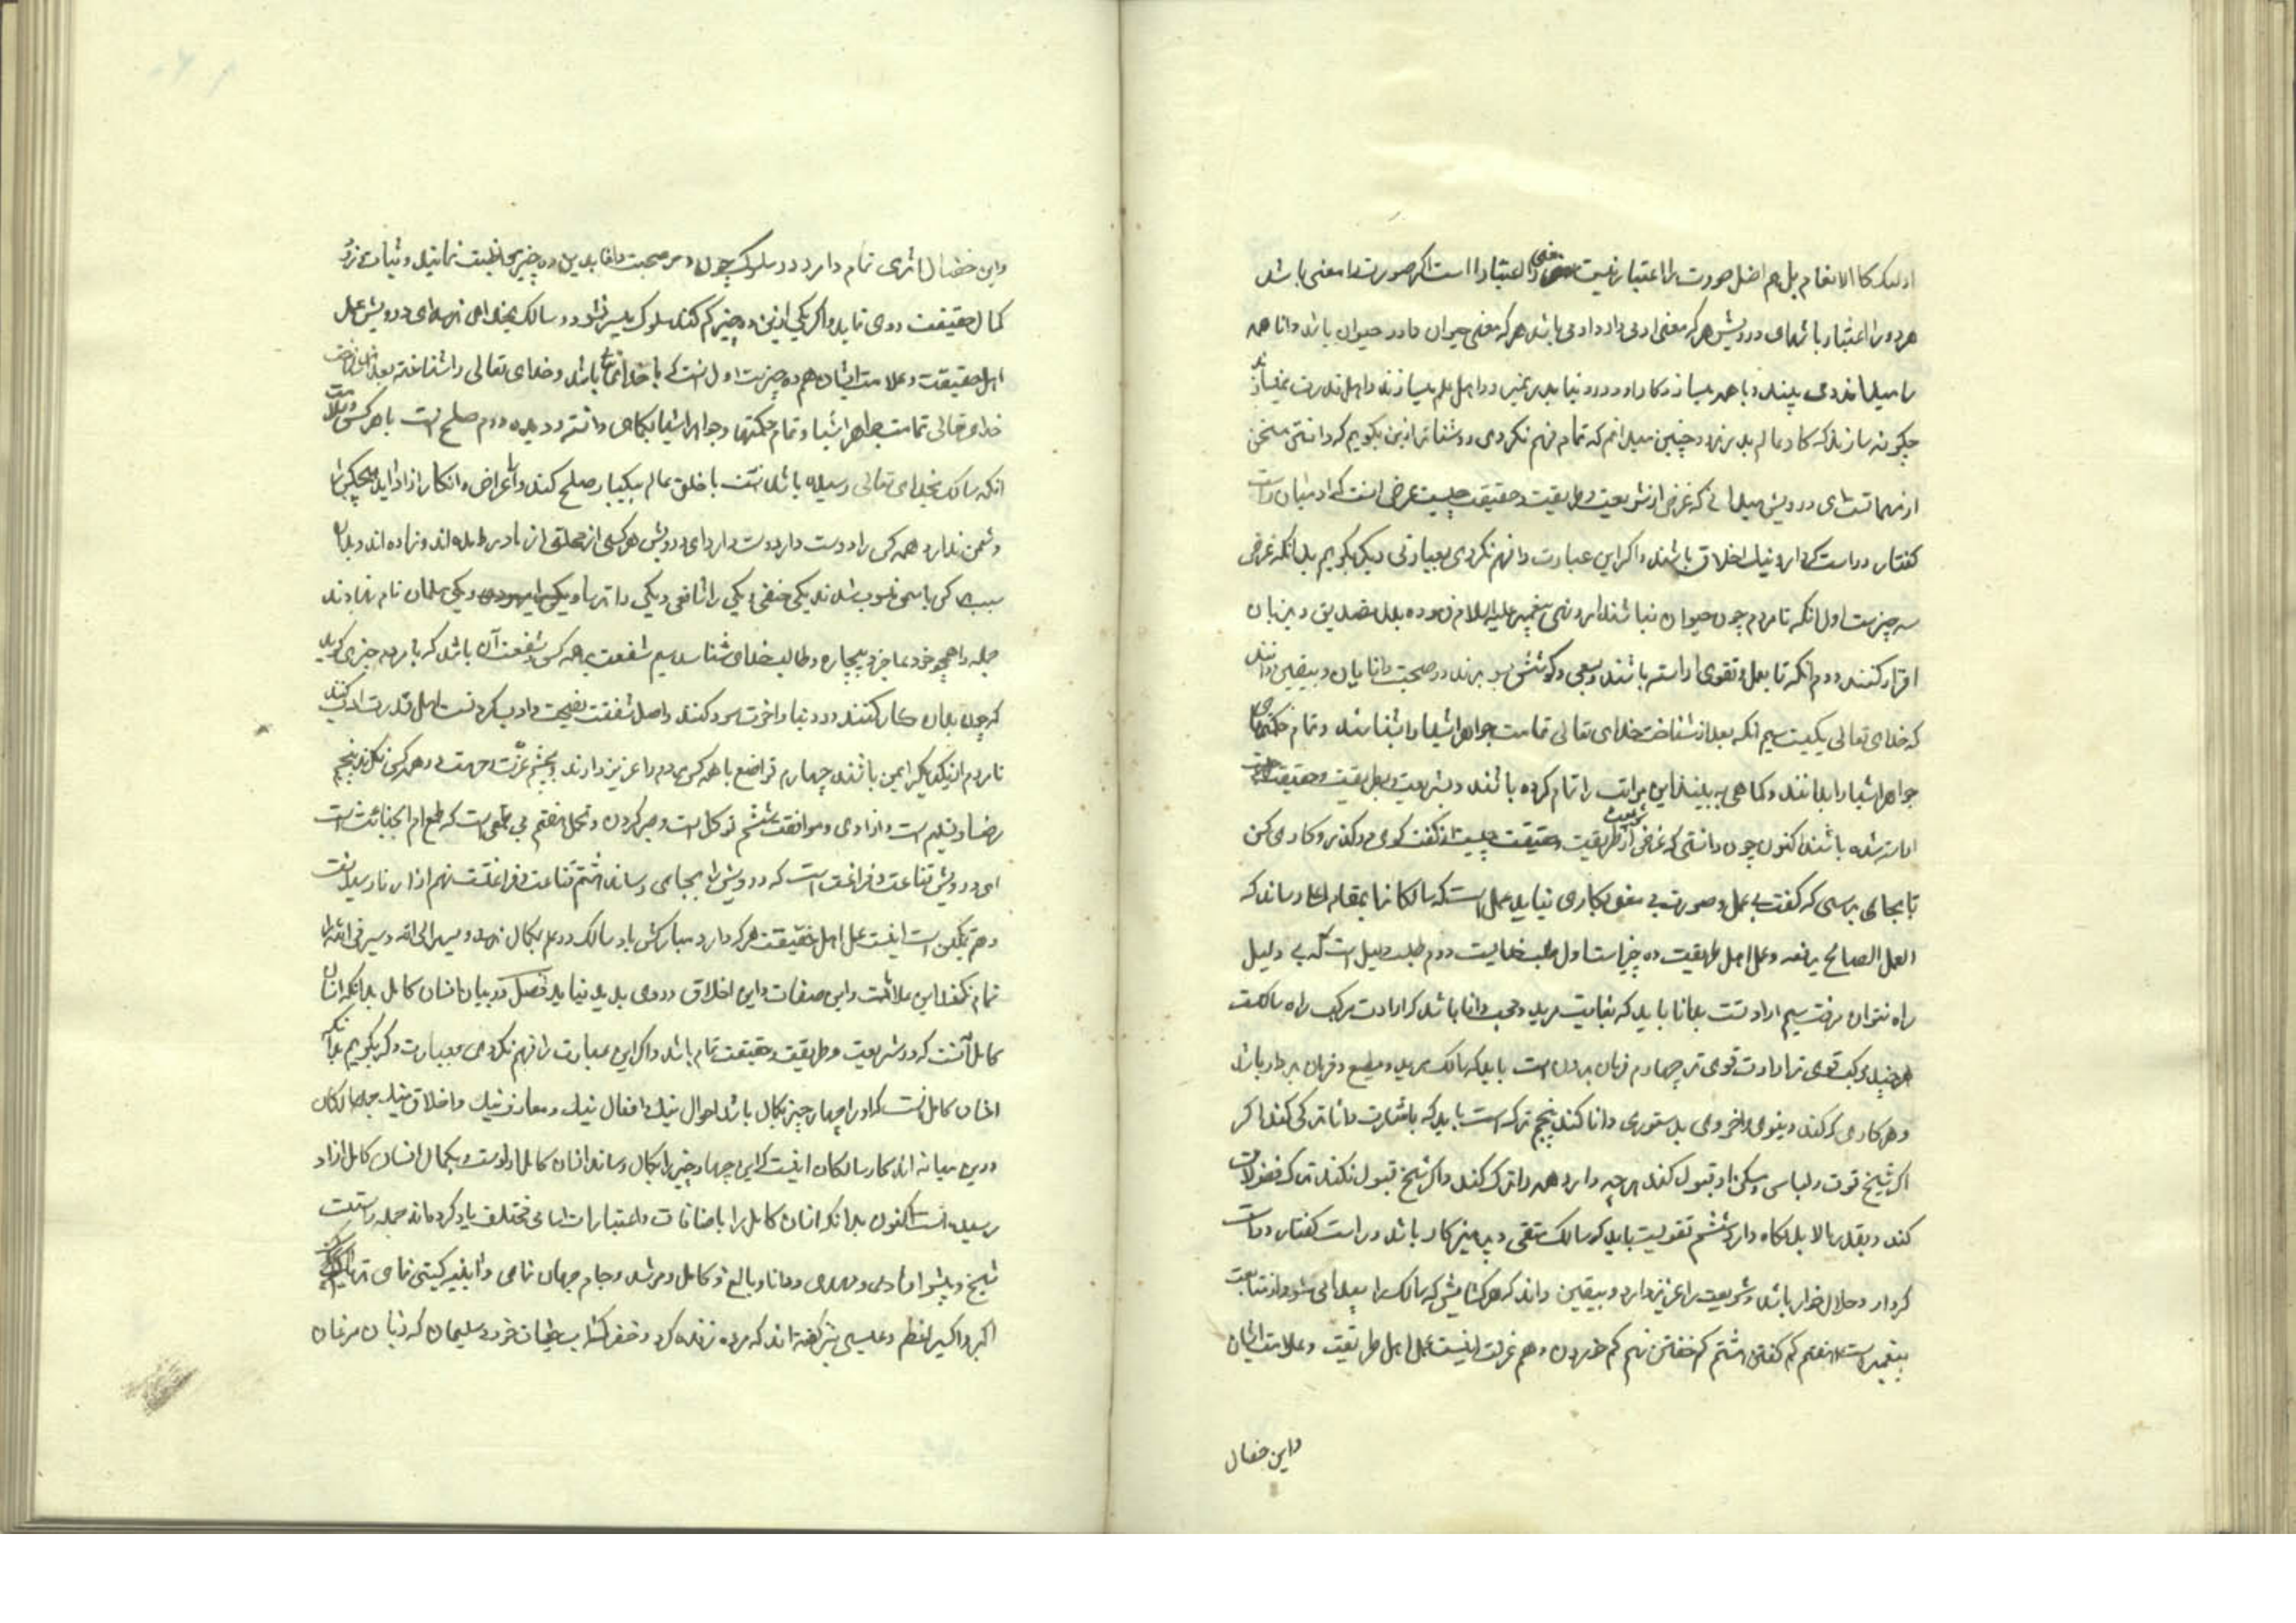 اولئک کا الانعام بل هم اضل صورت را اعتبار نیست معنی را اعتبار است اکر صورت با معنی باشد
هر دو را اعتبار باشد ای درویش هر که معنی ادمی دارد ادمی باشد هر که معنی حیوان دارد حیوان باشد و دانا همه
را میداند و می بیند و با همه میسازد
چکونه سازند که کار عالم بدیشان چنین میدانم که تمام فهم نکردی روشنتر ازین بکویم که دانستن سخن
از مهماتست ای درویش میدانی که غرض از شریعت و طریقت و حقیقت چیست غرض انست که ادمیان راست
کفتار و راست کردار و نیک اخلاق باشند و اکر این عبارت را فهم نکردی بعبارتی دیکر بکویم بدانکه غرض
سه چیزست اول انکه تا مردم چون حیوان نباشند امر و نهی پیغمبر علیه السلام بدل تصدیق و بزبان
اقرار کنند دوم انکه تا بعمل و تقوی اراسته باشند و بسعی و کوشش در صحبت دانایان و بیقین دانند
که خدای تعالی یکیست سیم انکه بعد از شناخت خدای تعالی تمامت جواهر اشیا را بشناسند و تمام حکمتهای
جواهر اشیا را بدانند و کماهی به بینند این مراتب را تمام کرده باشند و بشریعت و طریقت و حقیقت
اراسته شده باشند اکنون چون دانستی که غرض از شریعت طریقت و حقیقت چیست از کفت کوی در کذر و کار می کن
تا بجای برسی که کفت بی عمل و صورت بی معنی بکاری نیاید عمل است که سالکانرا بمقام اعلا رساند که
العمل الصالح یرفعه و عمل اهل طریقت ده چیزاست اول طلب خدایست دوم طلب دلیل است که بی دلیل
راه نتوان رفت سیم ارادتست بدانا باید که بغایت مرید و محب دانا باشد که ارادت مرکب راه سالکست
هرچند مرکب قوی تر ارادت قوی تر چهارم فرمان بردن است باید که سالک مرید و مطیع و فرمان بردار باشد
و هر کاری که کند دینوی و اخروی بدستوری دانا کند پنجم ترک است باید که باشارت دانا ترک کند اکر
اکر شیخ قوت و لباس و مسکن او قبول کند هر چه دارد همه را ترک کند و اکر شیخ قبول نکند ترک فضولات
کند و بقدر مالا بد نکاه دارد ششم تقویست باید که سالک متقی و پرهیزکار باشد و راست کفتار و راست
کردار و حلال خوار باشد و شریعت را عزیز دارد و بیقین داند که هر کشایش که سالک را پیدا می شود از متابعت
پیغمبرست هفتم کم کفتن هشتم کم خفتن نهم کم خوردن دهم عزلت اینست عمل اهل طریقت و علامت ایشان
واین خصال
واین خصال اثری تمام دارد در سلوک چون در صحبت دانا بدین ده چیز محافظت نماید و ثبات ورزد
کمال حقیقت روی نماید و اکر یکی ازین ده چیز کم کند سلوک میسر نشود و سالک بخدای نرسد ای درویش عمل
اهل حقیقت و علامت ایشان هم ده چیزست اول انست که با خدای باشد و خدای تعالی را شناخته بعد از شناخت
خدای تعالی تمامت جواهر اشیا و تمام حکمتهای جواهر اشیا بکماهی دانسته و دیده دوم صلح است با هر کس
انکه سالک بخدای تعالی رسیده باشد انست با خلق عالم بیکبار صلح کند و اعراض و انکار ازاد اید هیچکس را
دشمن ندارد همه کس را دوست دارد ای درویش هر کسی از خلق از مادر و زاده اند و بدان
سبب هر کس باسمی منسوب شدند یکی حنفی و یکی را شافعی و یکی را ترسا و یکی را یهودی و یکی مسلمان نام نهادند
جمله را همچو خود عاجز و بیچاره و طالب خدای شناسد سیم شفقت بر همه کس و شفقت آن باشد که با مردم چیزی کوید
که چون بدان کار کنند در دنیا و اخرت سود کنند و اصل شفقت نصیحت و ادب کردنست اهل قدرت ادب کنند
تا مردم از یکدیکر ایمن باشند چهارم تواضع با همه کس مردم را عزیز دارند و بچشم عزت و حرمت در همه کس نکاه پنجم
رضا و تسلیم است و ازادی و موافقت ششم توکل است و صبر کردن و تحمل هفتم بی طمعی است که طمع ام الخبائث است
ای درویش قناعت و فراغت است که درویش را بجایی رساند هشتم قناعت و فراغتست نهم ازار نارسیدنست
دهم تمکین است اینست عمل اهل حقیقت هر که دارد مبارکش باد سالک در عمل بکمال نرسد و سیر الی الله و سیر فی الله را
تمام نکند این علامت و این صفات و این اخلاق در وی پدید نیاید فصل در بیان انسان کامل بدانکه انسان
کامل آنست که در شریعت و طریقت و حقیقت تمام باشد و اکر این عبارت را فهم نکردی بعبارت دیکر بکویم بدانکه
انسان کامل انست که او را چهار چیز بکمال باشد احوال نیک و افعال نیک و معارف نیک و اخلاق نیک جمله سالکان
درین میانه اند کار سالکان اینست که این چهار چیز را بکمال رساند انسان کامل اوست و بکمال انسان کامل ازاد
رسیده است اکنون بدانکه انسان کامل را باضافات و اعتبارات اسامی مختلف یاد کرده اند جمله راستست
شیخ و پیشوا و هادی و مهدی و دانا و بالغ و کامل و مرشد و جام جهان نمای و آیینه کیتی نمای و تریاک
اکبر و اکسیر اعظم و عیسی نیز کفته اند که مرده زنده کرد و خضر که آب حیات خورد و سلیمان که زبان مرغان